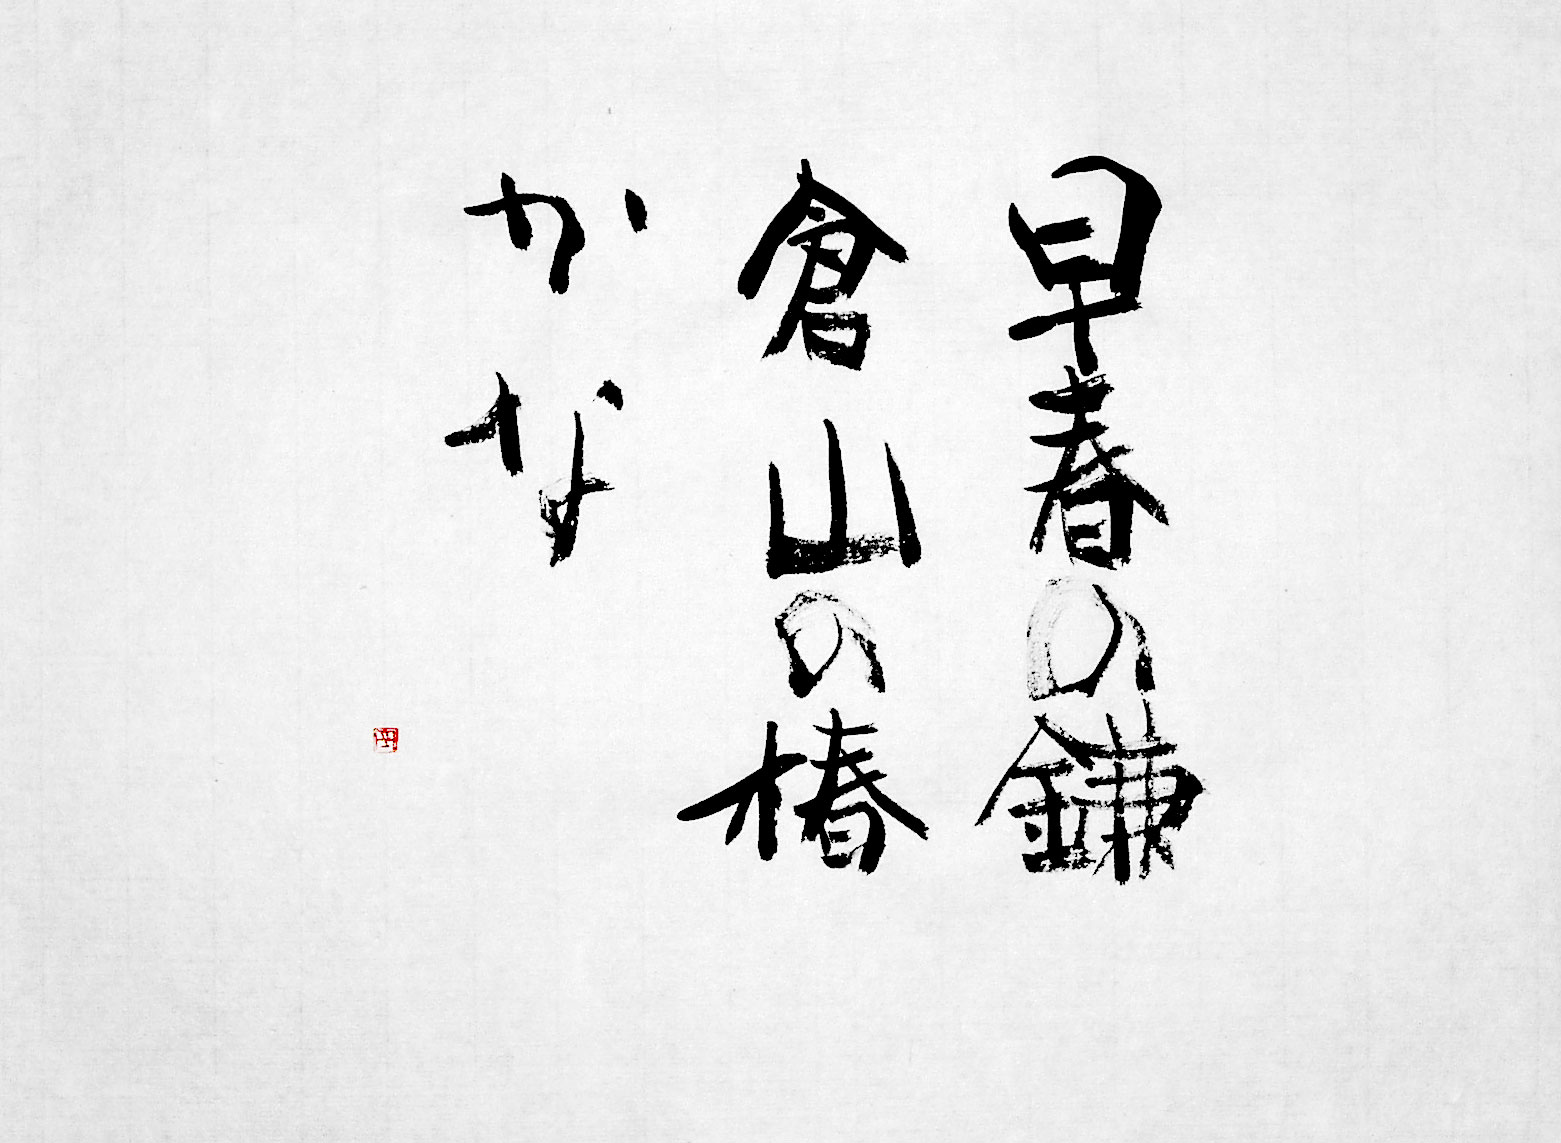 早春の鎌
倉山の椿
かな